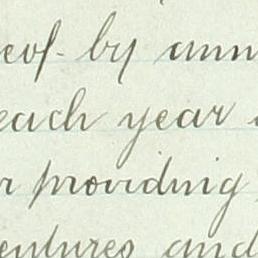 eof by ann
each year
r providing
entures and